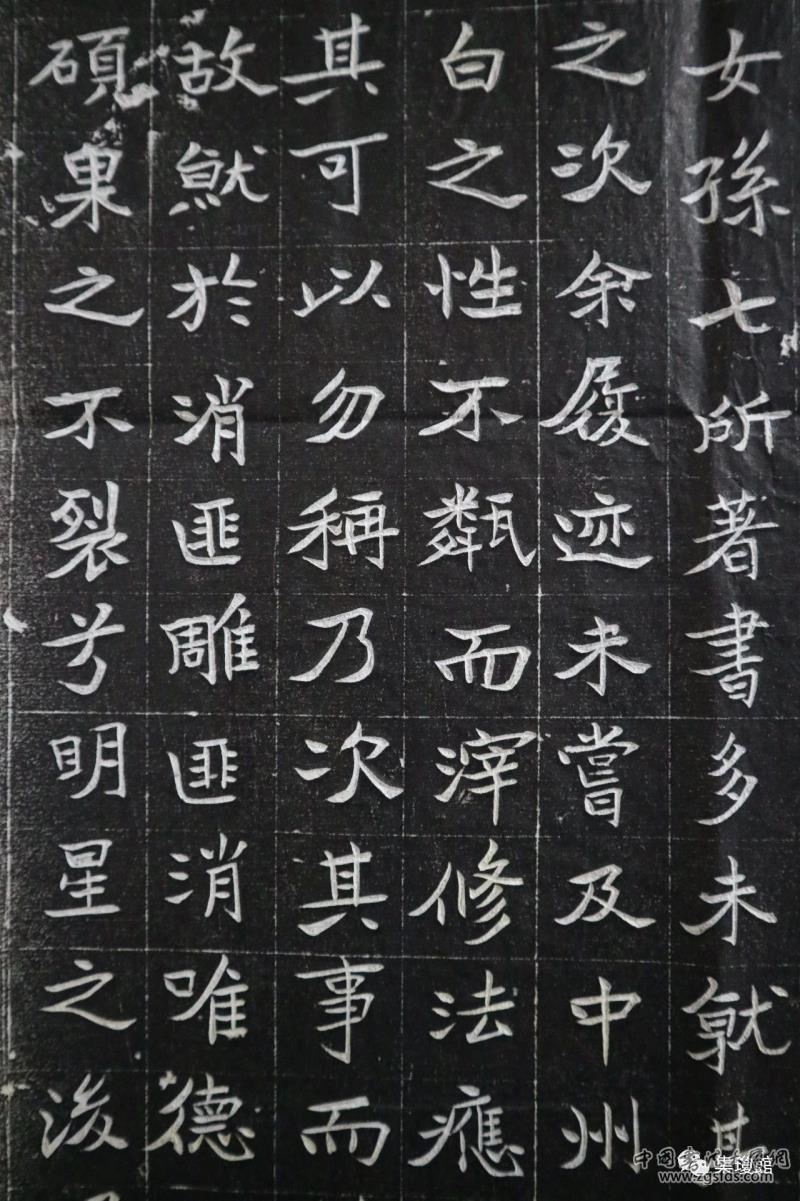 女孫七所著書多未就其
之次余履迹未嘗及中州
白之性不甐而滓修法應
其可以勿稱乃次其事而
故於消匪雕匪消唯德
碩果之不裂兮明星之浚
www.zgsfds.com